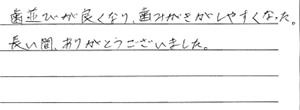 歯並びが良くなり、歯みがきがしやすくなった。
長い間、ありがとうございました。